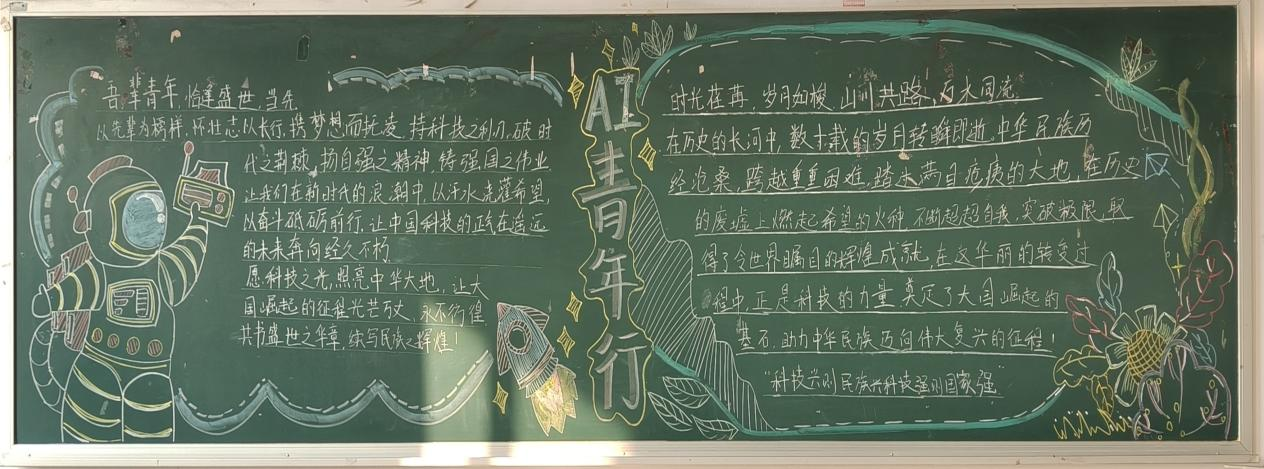 吾辈青年，恰逢盛世，当先
以先辈为榜样，怀壮志以长行，携梦想而抗凌，持科技之利刀，破时
代之荆棘，扬自强之精神，铸强国之伟业
让我们在新时代的浪潮中，以汗水浇灌希望，
以奋斗砥砺前行，让中国科技的 在遥远
的未来奔向经久不朽
愿科技之光，照亮中华大地，让大
国崛起的征程光芒万丈，永不彷徨
共书盛世之华章，续写民族之辉煌！
AI青年行
时光荏苒，岁月如梭，山川共路，百木同流
在历史的长河中，数十载的岁月转瞬即逝，中华民族历
经沧桑，跨越重重困难，踏出满目疮痍的大地，在历史
的废墟上燃起希望的火种，不断超越自我，突破极限，取
得了令世界瞩目的辉煌成就，在这华丽的转变过
程中，正是科技的力量，奠定了大国崛起的
基石，助力中华民族迈向伟大复兴的征程！
“科技兴则民族兴科技强则国家强”